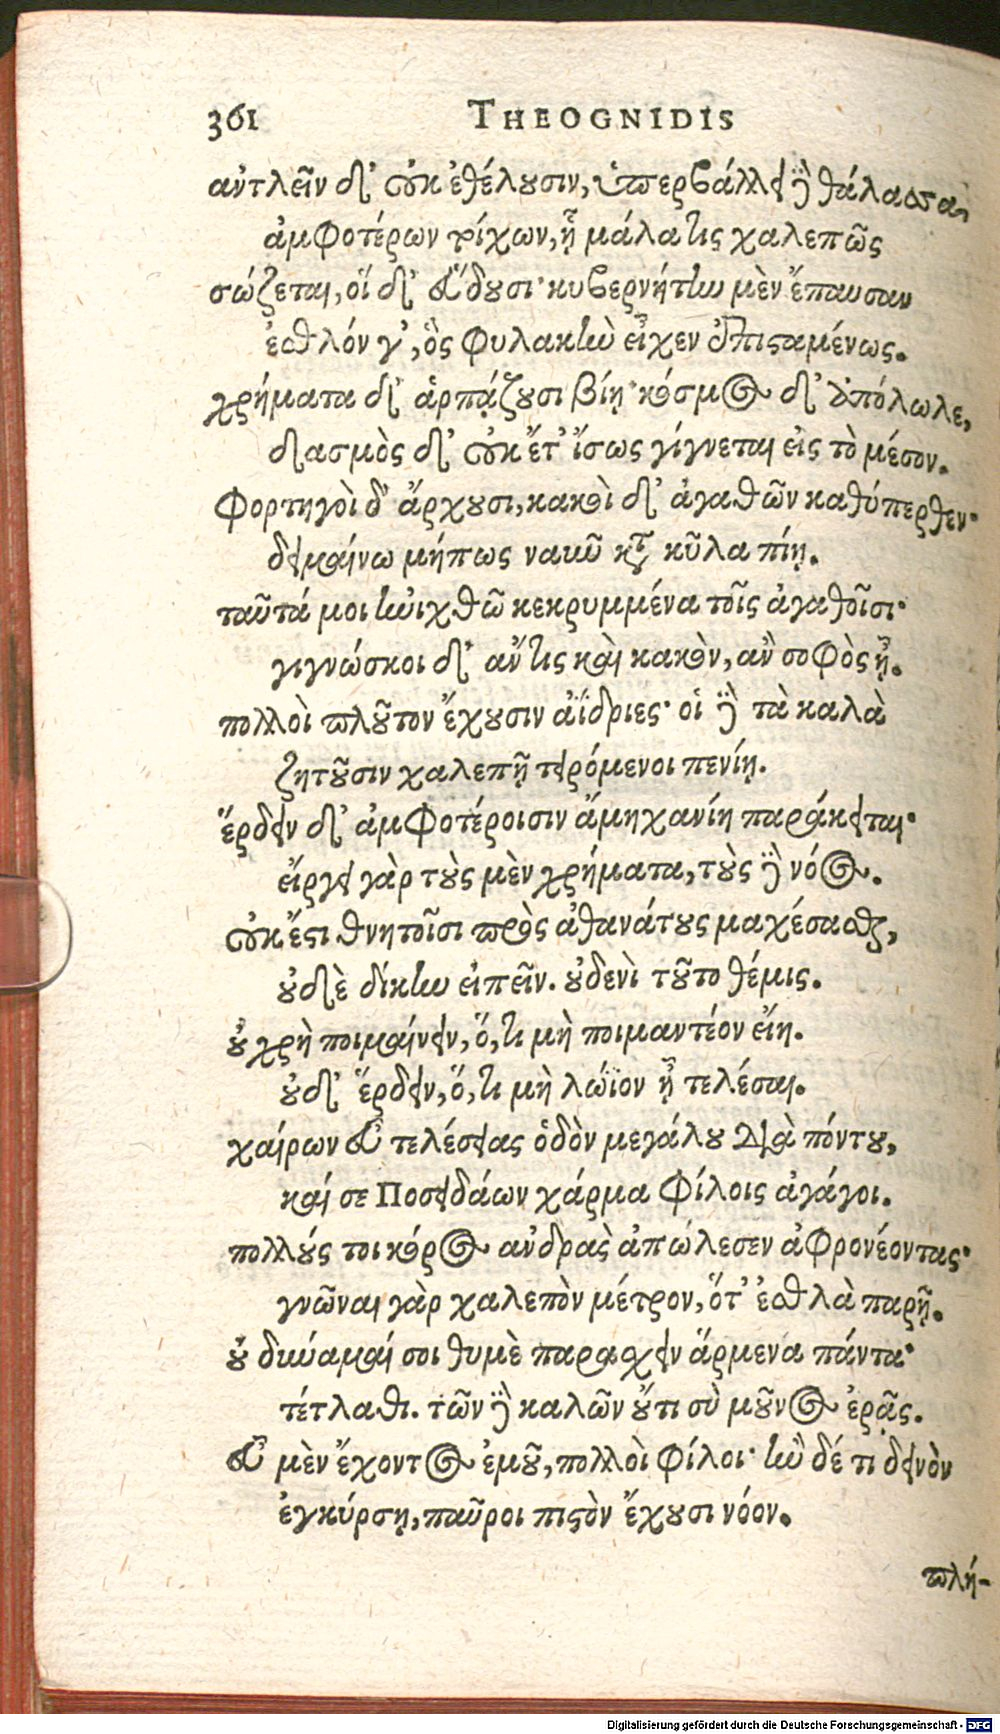 361 THEOGNIDIS
ἀντλεῖν δ' οὐκ ἐθέλουσιν, ὑπερβάλλει δὲ θάλασσα,
ἀμφοτέρων τοίχων, ἦ μάλα τις χαλεπῶς
σώζεται, οἵ δ' εὕδουσι· κυβερνήτην μὲν ἔπαυσαν
ἐσθλόν γ', ὃς φυλακὴν εἶχεν ἐπισταμένως.
χρήματα δ' ἁρπάζουσι βίῃ· κόσμος δ' ἀπόλωλε,
δασμὸς δ' οὐκ ἔτ' ἴσως γίγνεται εἰς τὸ μέσον.
Φορτηγοὶ δ' ἄρχουσι, κακοὶ δ' ἀγαθῶν καθύπερθεν·
δειμαίνω μήπως ναυῦ κατὰ κῦλα πίῃ.
ταῦτά μοι ἠνίχθω κεκρυμμένα τοῖς ἀγαθοῖσι·
γιγνώσκοι δ' ἄν τις καὶ κακὸν, ἂν σοφὸς ᾖ.
πολλοὶ πλοῦτον ἔχουσιν ἀΐδριες· οἱ δὲ τὰ καλὰ
ζητοῦσιν χαλεπῇ τειρόμενοι πενίῃ.
ἔρδειν δ' ἀμφοτέροισιν ἀμηχανίη παράκειται·
εἴργει γὰρ τοὺς μὲν χρήματα, τοὺς δὲ νόος.
οὐκ ἔστι θνητοῖσι πρὸς ἀθανάτους μαχέσασθαι,
οὐδὲ δίκην εἰπεῖν. οὐδενὶ τοῦτο θέμις.
οὐ χρὴ ποιμαίνειν, ὅ, τι μὴ ποιμαντέον εἴη.
οὐδ' ἔρδειν, ὅ, τι μὴ λώϊον ᾖ τελέσαι.
χαίρων εὖ τελέσειας ὁδὸν μεγάλου διὰ πόντου,
καί σε Ποσειδάων χάρμα φίλοις ἀγάγοι.
πολλούς τοι κόρος ἄνδρας ἀπώλεσεν ἀφρονέοντας·
γνῶναι γὰρ χαλεπὸν μέτρον, ὅτ' ἐσθλὰ παρῇ.
οὐ δύναμαί σοι θυμὲ παρασχεῖν ἄρμενα πάντα·
τέτλαθι. τῶν δὲ καλῶν οὔτι σὺ μοῦνος ἐρᾷς.
εὖ μὲν ἔχοντος ἐμοῦ, πολλοὶ φίλοι· ἢν δέ τι δεινὸν
ἐγκύρσῃ, παῦροι πιστὸν ἔχουσι νόον.
πλή-
Digitalisierung gefördert durch die Deutsche Forschungsgemeinschaft - DFG